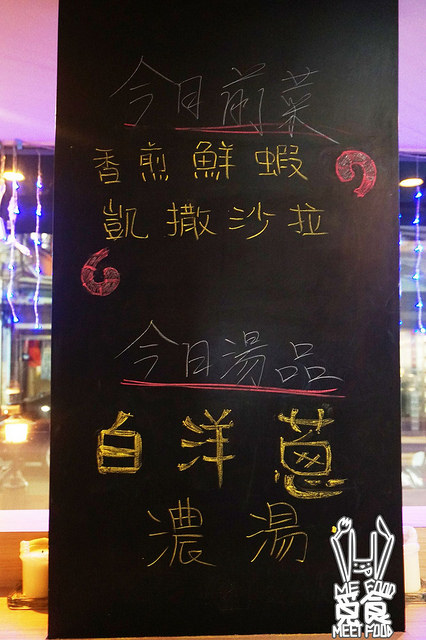 今日前菜
香煎鮮蝦
凱撒沙拉
今日湯品
白洋蔥
濃湯
ME FOOD
MEET FOOD